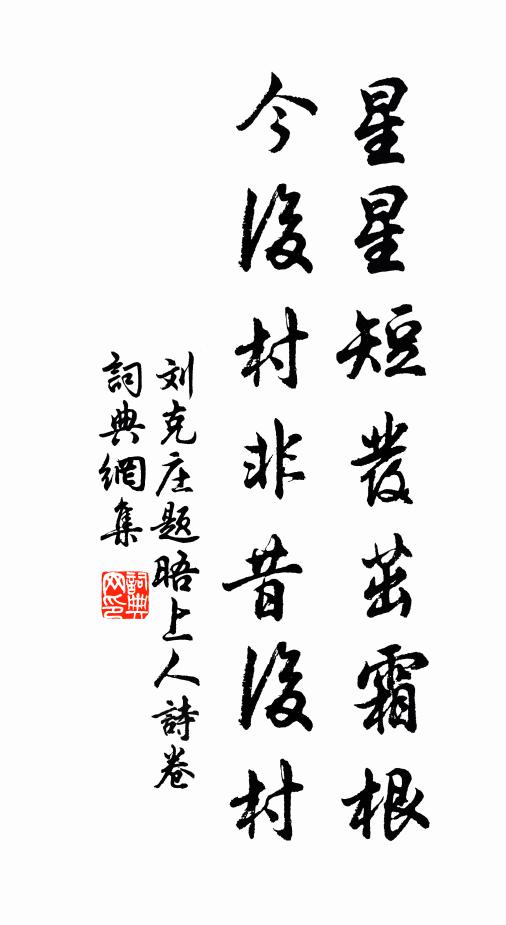 星星短發茁霜根
今後村非昔後村
刘克庄題晤上人詩卷
詞典網集
詞典网印